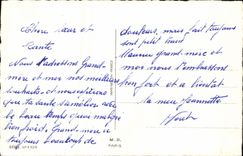 Chère sœur et
Tante
Nous t'adressons Grand-
mère et moi nos meilleurs
souhaits et nous espérons
que ta santé s'améliore avec
le beau temps qui
bientôt. Grand-mère a
toujours beaucoup de
douleurs, mais fait toujours
son petit
Maurice grand-mère et
moi nous t'embrassons
bien fort et a bientôt
ta nièce Jeannette
M. D.
PARIS